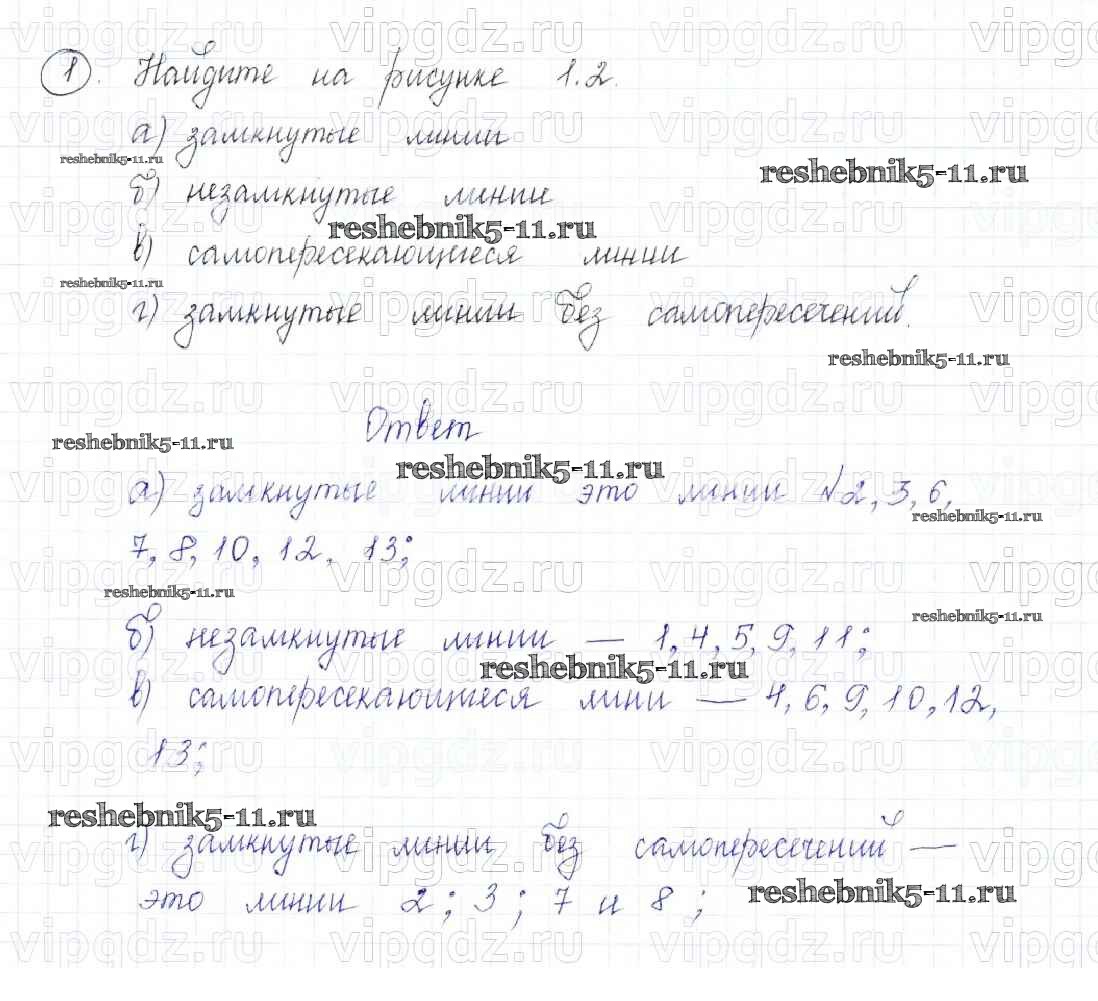 1. Найдите на рисунке 1.2.
а) замкнутые линии
б) незамкнутые линии
в) самопересекающиеся линии
г) замкнутые линии без самопересечений.
Ответ
а) замкнутые линии это линии №2, 3, 6,
7, 8, 10, 12, 13;
б) незамкнутые линии — 1, 4, 5, 9, 11;
в) самопересекающиеся лини — 4, 6, 9, 10, 12,
13;
г) замкнутые линии без самопересечений —
это линии 2; 3; 7 и 8;
vipgdz.ru
reshebnik5-11.ru